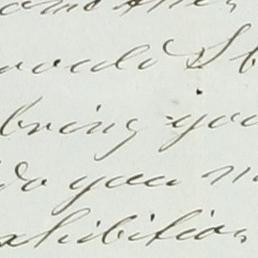 would I b
bring you
Do you n
exhibition